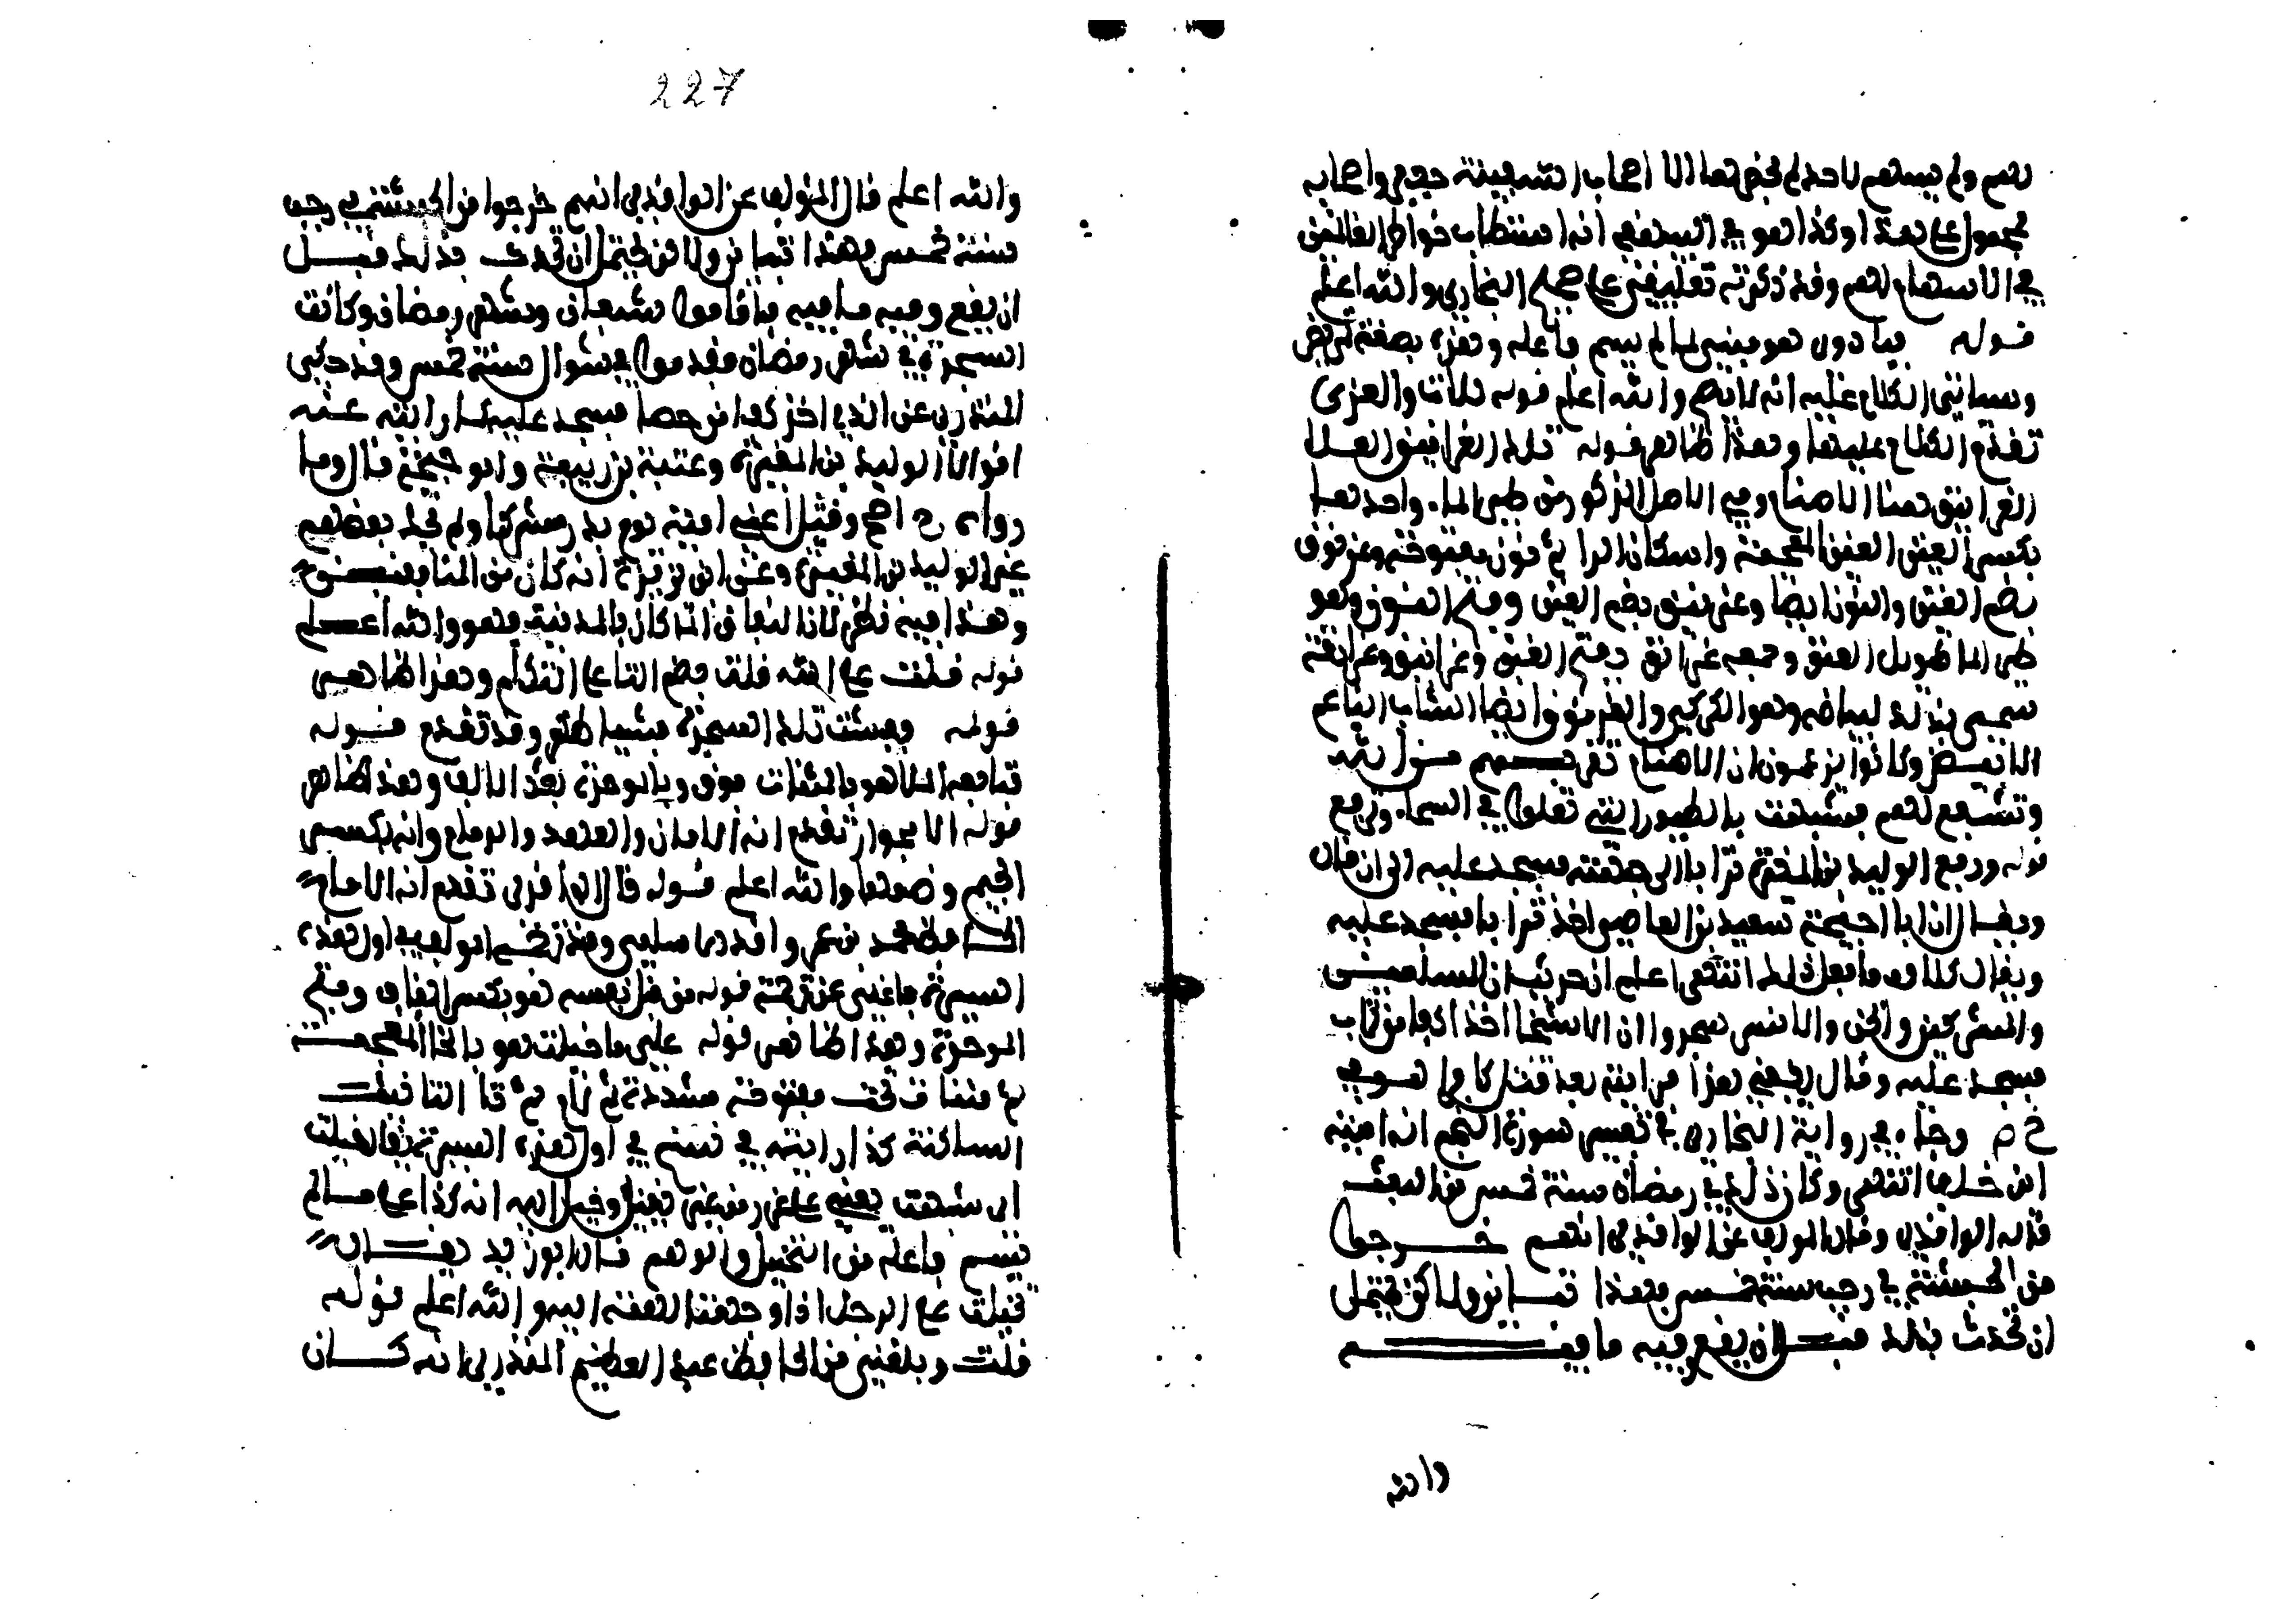 لهم ولم يسهم لاحد لم يحضرها الا اصحاب السفينة جعفر واصحابه
محمول على هذا وكذا هو في البيهقي انه استطاب خواطر الغانمين
في الاسهام لهم وقد ذكرته تعليقي على صحيح البخاري والله اعلم
قوله فيما دون هو مبني لما لم يسم فاعله وهذه بصيغة تمريض
وسياتي الكلام عليه انه لا يصح والله اعلم قوله اللات والعزى
تقدم الكلام عليها وهذا ظاهر قوله تلك الغرانيق العلا
الغرانيق هنا الاصنام وهي الاصل الذكور من طير الما واحدها
بكسر الغين المعجمة واسكان الرا ثم نون مفتوحة وغرنوق
بضم الغين والنون ايضا وغرنيق بضم الغين وفتح النون وهو
طير الما طويل العنق وجمعه غرانق بفتح الغين وغرانيق وغرانقة
سمي بذلك لبياضه وهو الكركي والغرنوق ايضا الشاب الناعم
الابيض وكانوا يزعمون ان الاصنام تقربهم من الله
وتشفع لهم فشبهت بالطيور التي تعلوا في السماء وترتفع
قوله ورفع الوليد بن المغيرة ترابا الى جبهته فسجد عليه الى ان قال
ويقال ان ابا احيحة سعيد بن العاصي اخذ ترابا فسجد عليه
ويقال كلاهما فعل ذلك انتهى اعلم ان حديث ان المسلمين
والمشركين والجن والانس سجدوا ان الا شيخا اخذ كفا من تراب
فسجد عليه وقال يكفيني هذا فرايته بعد قتل كافرا هو في
خ م وجاء في رواية البخاري في تفسير سورة النجم انه امية
ابن خلف انتهى وكان ذلك في رمضان سنة خمس من البعث
قاله الواقدي وقال المولف عن الواقدي انهم خرجوا
من الحبشة في رجب سنة خمس وهذا تباين ولاكن يحتمل
ان تحدث بذلك قبل ان يقع وفيه ما فيه
والله
227
والله اعلم قال المولف عن الواقدي انهم خرجوا من الحبشة في رجب
سنة خمس وهذا تباين ولاكن يحتمل ان تحدث بذلك قبل
ان يقع وفيه ما فيه فاقاموا شعبان وشهر رمضان وكانت
السجدة في شهر رمضان فقدموا في شوال سنة خمس وقد حكى
المنذري عن الذي اخذ كفا من حصا فسجد عليه
اقوالا الوليد بن المغيرة وعتبة بن ربيعة وابو احيحة قال وما
رواه خ اصح وقتل اعني امية يوم بدر مشركا ولم يحك بعضهم
غير الوليد بن المغيرة وعن ابن بزيزة انه كان من المنافقين
وهذا فيه نظر لان النفاق انما كان بالمدينة فهو والله اعلم
قوله قلت على الله قلت بضم التا على التكلم وهذا ظاهر
قوله وفشت تلك السجدة فشت ظهرت وقد تقدم قوله
تباعد الملا هو بالمثناة فوق وبالموحدة بعد الالف وهذا ظاهر
قوله الا بجوار تقدم انه الامان والعهد والذمام وانه بكسر
الجيم وضمها والله اعلم قوله قال الواقدي تقدم انه الامام
الحافظ محمد بن عمر بن واقد الاسلمي وقد ترجمه المولف في اول هذه
السيرة فاغنى عن ترجمته قوله من قبل نفسه هو بكسر القاف وفتح
الموحدة وهذا ظاهر قوله على ما خيلت هو بالخا المعجمة
ثم مثناة تحت مفتوحة مشددة ثم لام ثم تا التانيث
الساكنة كذا رايته في نسختي في اول هذه السيرة يقال خيلت
اي شبهت يعني على غرر من غير يقين وقيل انه كذا على ما لم
يسم فاعله من التخييل والوهم قال ابو زيد يقال
خيلت على الرجل اذا وجهت التهمة اليه والله اعلم قوله
قلت وبلغني من الحافظ عبد العظيم المنذري انه كان